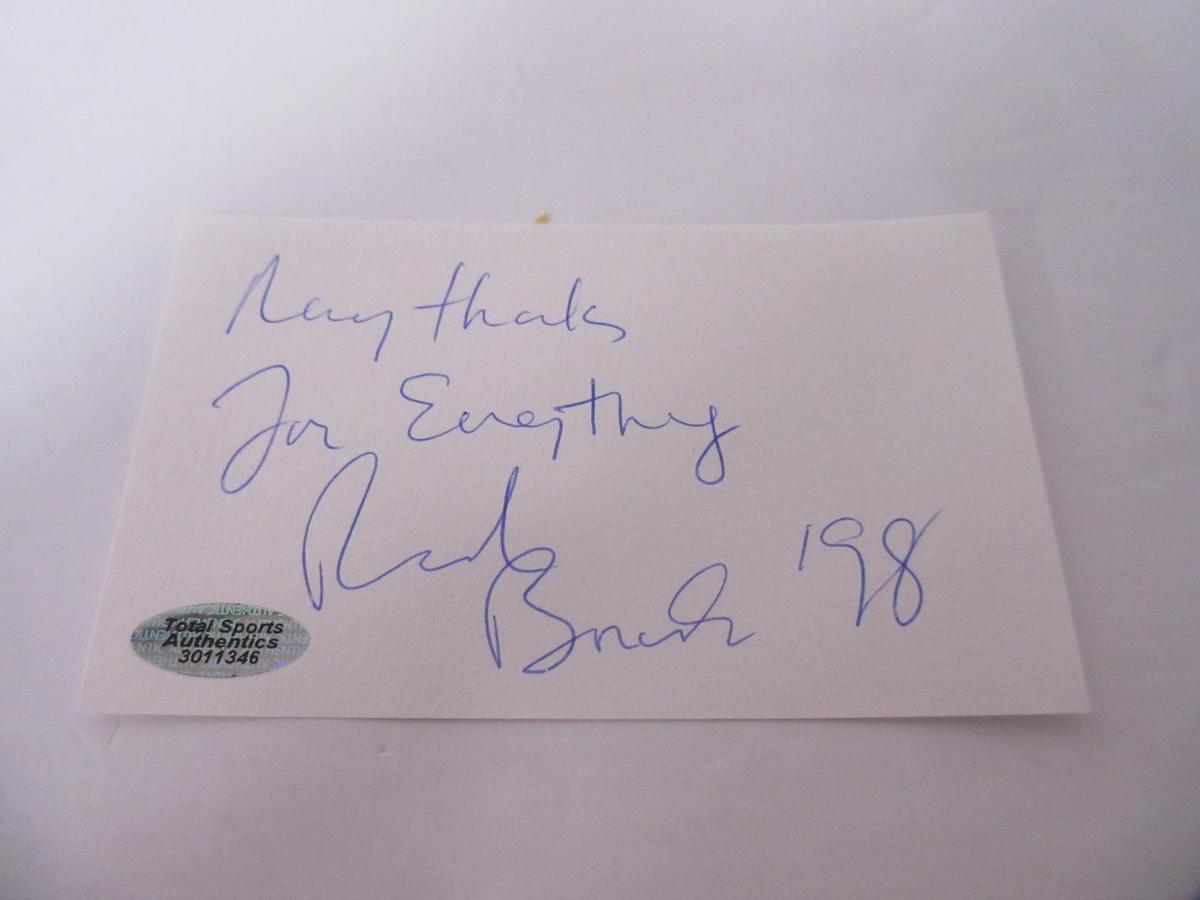 Many thanks
For Everything
'98
Total Sports
Authentics
3011346